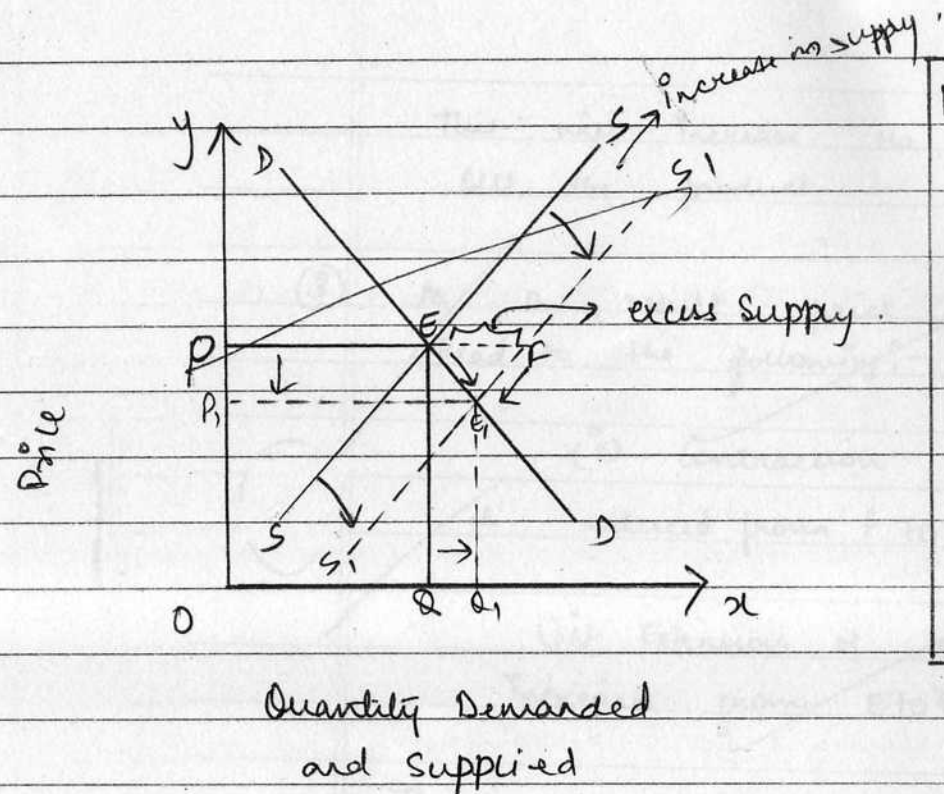 increase in supply.
y
D
S
S1
E
excess supply.
P
F
P1
E1
Price
S
S1
D
O
Q
Q1
x
Quantity Demanded
and Supplied